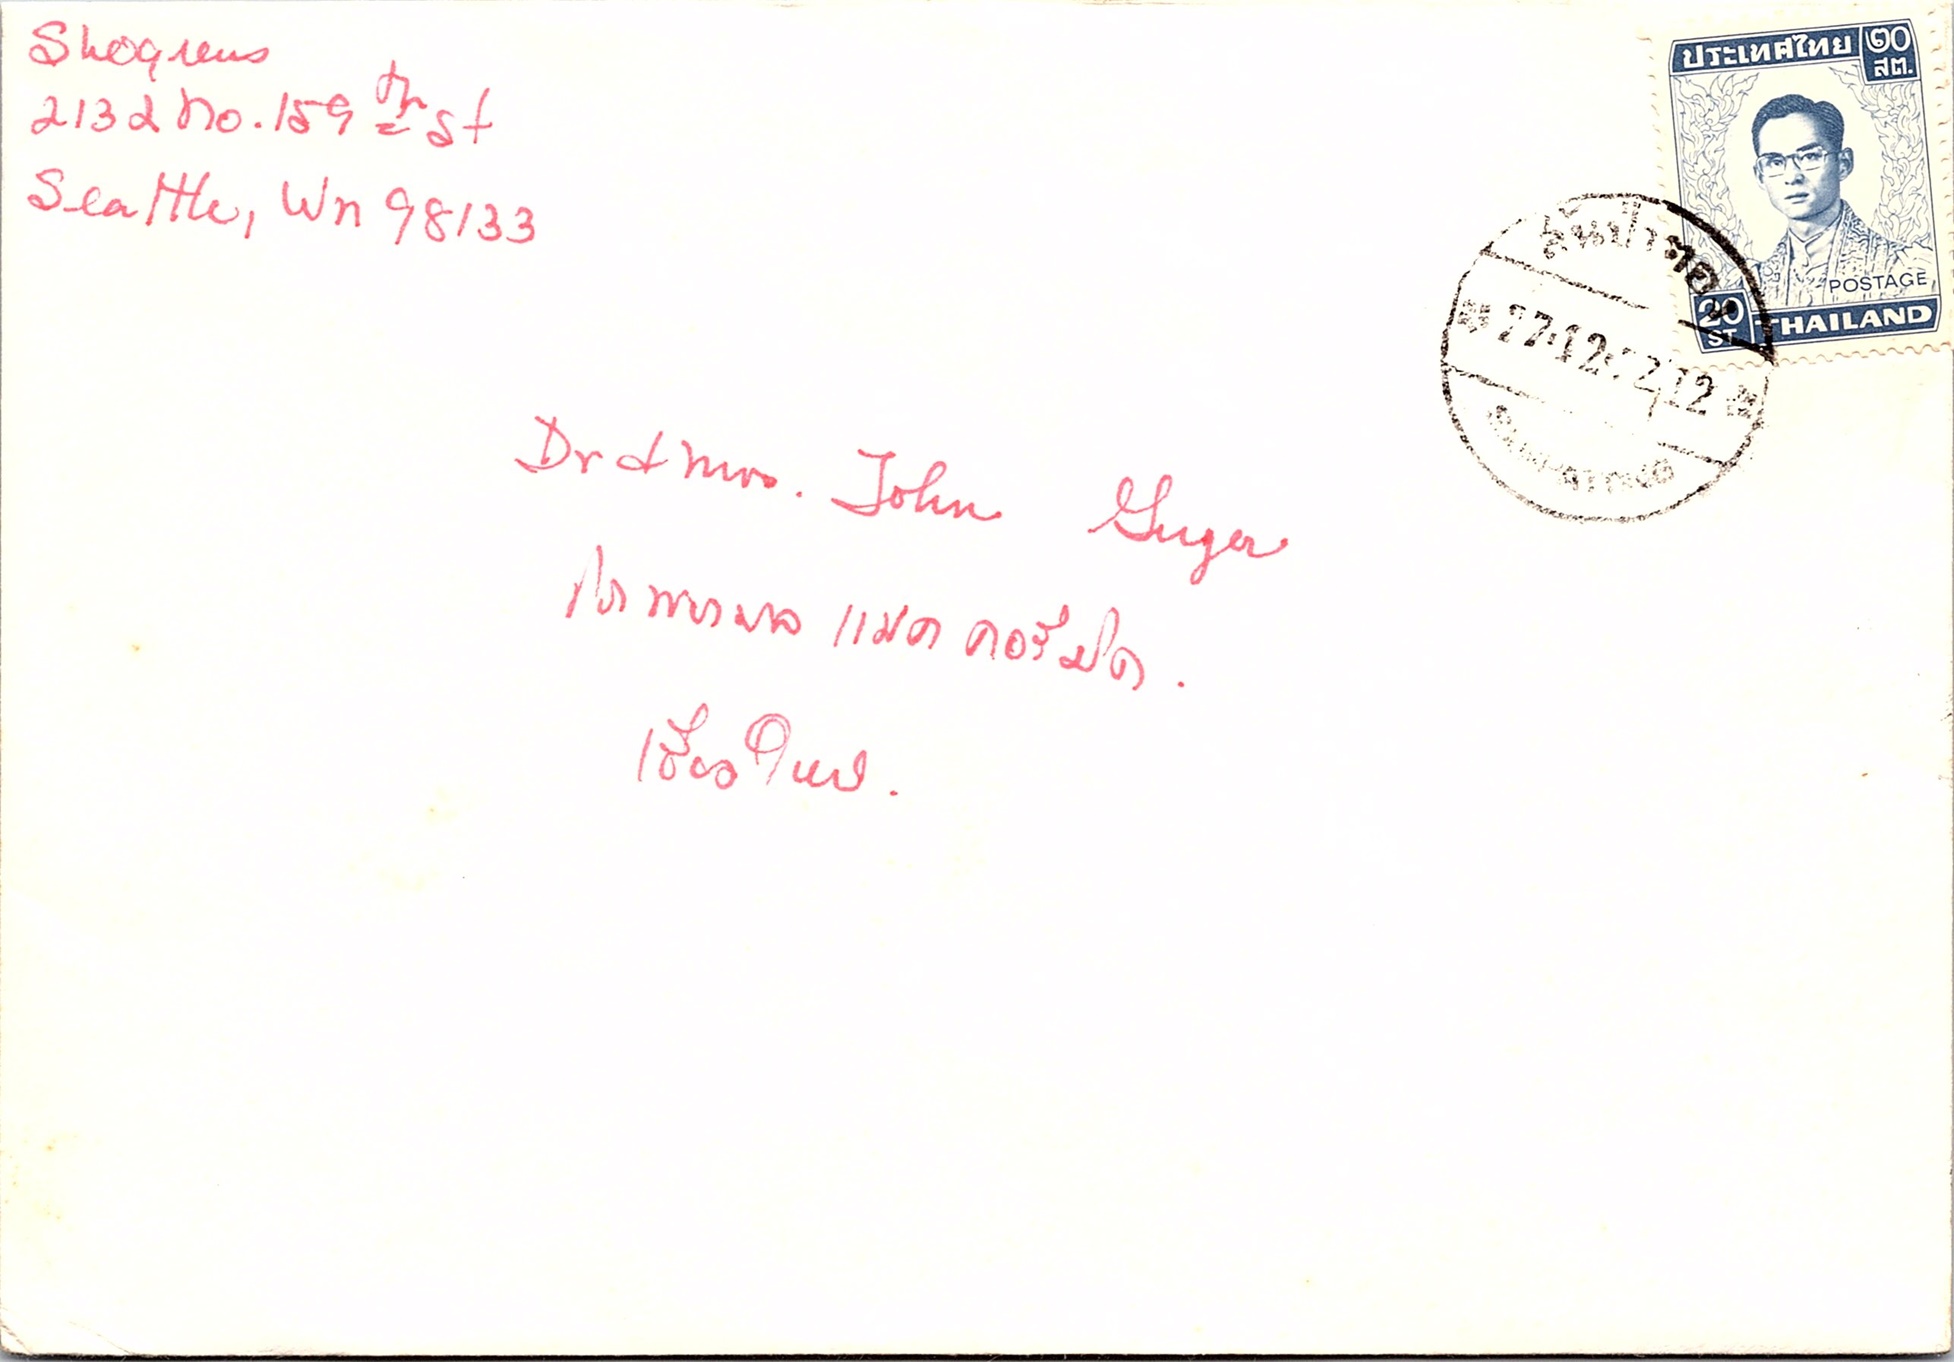 Shogrens
2132 No. 159 th St
Seattle, Wn 98133
ประเทศไทย ๒๐ สต.
POSTAGE
20 ST. THAILAND
สันป่าตอง
27.12. 12
Dr & Mrs. John Guyer
แมคคอร์มิค.
เชียงใหม่.